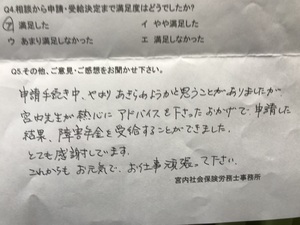 Q4.相談から申請・受給決定まで満足度はどうでしたか?
ア 満足した イ やや満足した
ウ あまり満足しなかった エ 満足しなかった
Q5.その他、ご意見・ご感想をお聞かせ下さい。
申請手続き中、やはりあきらめようかと思うことがありましたが
宮内先生が熱心にアドバイスを下さったおかげで、申請した
結果、障害年金を受給することができました。
とても感謝しています。
これからもお元気で、お仕事頑張って下さい。
宮内社会保険労務士事務所